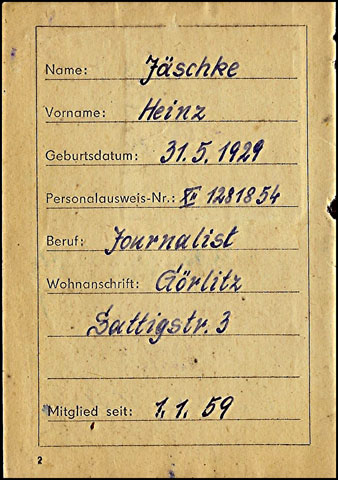 Name: Jäschke
Vorname: Heinz
Geburtsdatum: 31.5.1929
Personalausweis-Nr.: XII 1281854
Beruf: Journalist
Wohnanschrift: Görlitz
Sattigstr. 3
Mitglied seit: 1.1.59
2